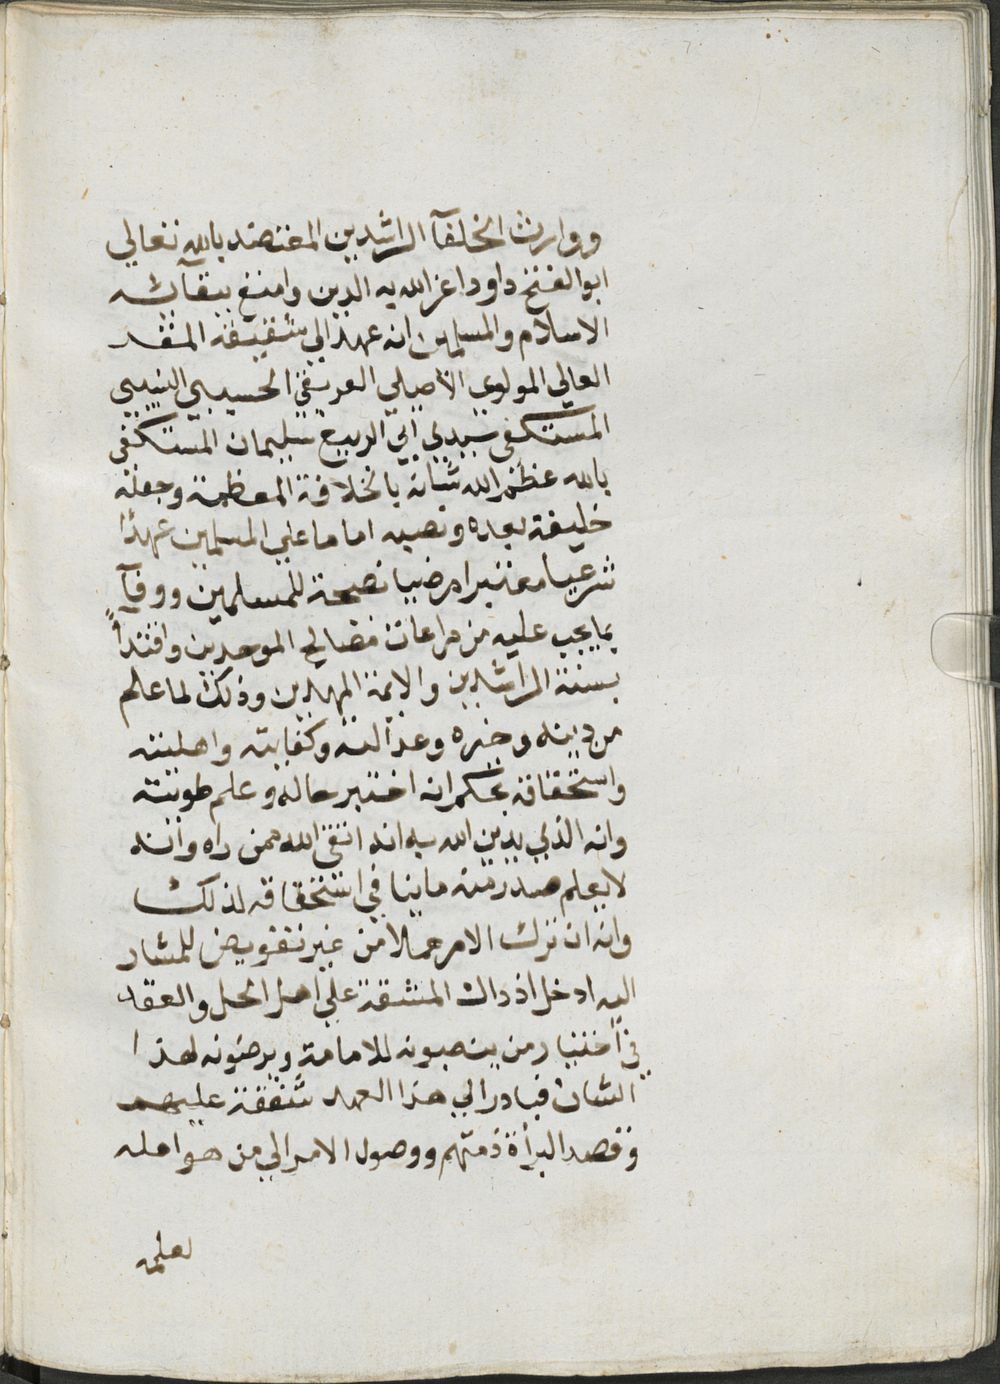 ووارث الخلفآ الراشدين المعتضد بالله تعالي
ابو الفتح داود اعز الله به الدين وامتع ببقآئه
الاسلام والمسلمين انه عهد الي شقيقه المقر
العالي المولوي الاصيلي العريقي الحسيبي النسيبي
المستكفي سيدي ابي الربيع سليمان المستكفي
بالله عظم الله شانه بالخلافة المعظمة وجعله
خليفة بعده ونصبه اماما علي المسلمين عهدًا
شرعيا معتبرا مرضيا نصيحة للمسلمين ووفآءً
بما يجب عليه من مراعات مصالح الموحدين واقتدآءً
بسنة الراشدين والايمة المهديين وذلك لما علم
من دينه وخيره وعدالته وكفايته واهليته
واستحقاقه بحكم انه اختبر حاله وعلم طويته
وانه الذي يدين الله به انه اتقي الله ممن راه وانه
لا يعلم صدر منه ما ينا في استحقاقه لذلك
وانه ان ترك الامر هملا من غير تفويض للمشار
اليه ادخل اذ ذاك المشقة علي اهل الحل والعقد
في اختيار من ينصبونه للامامة ويرضونه لهذا
الشان فبادر الي هذا العهد شفقة عليهم
وقصد البرأة ذمتهم ووصول الامر الي من هو اهله
لعلمه